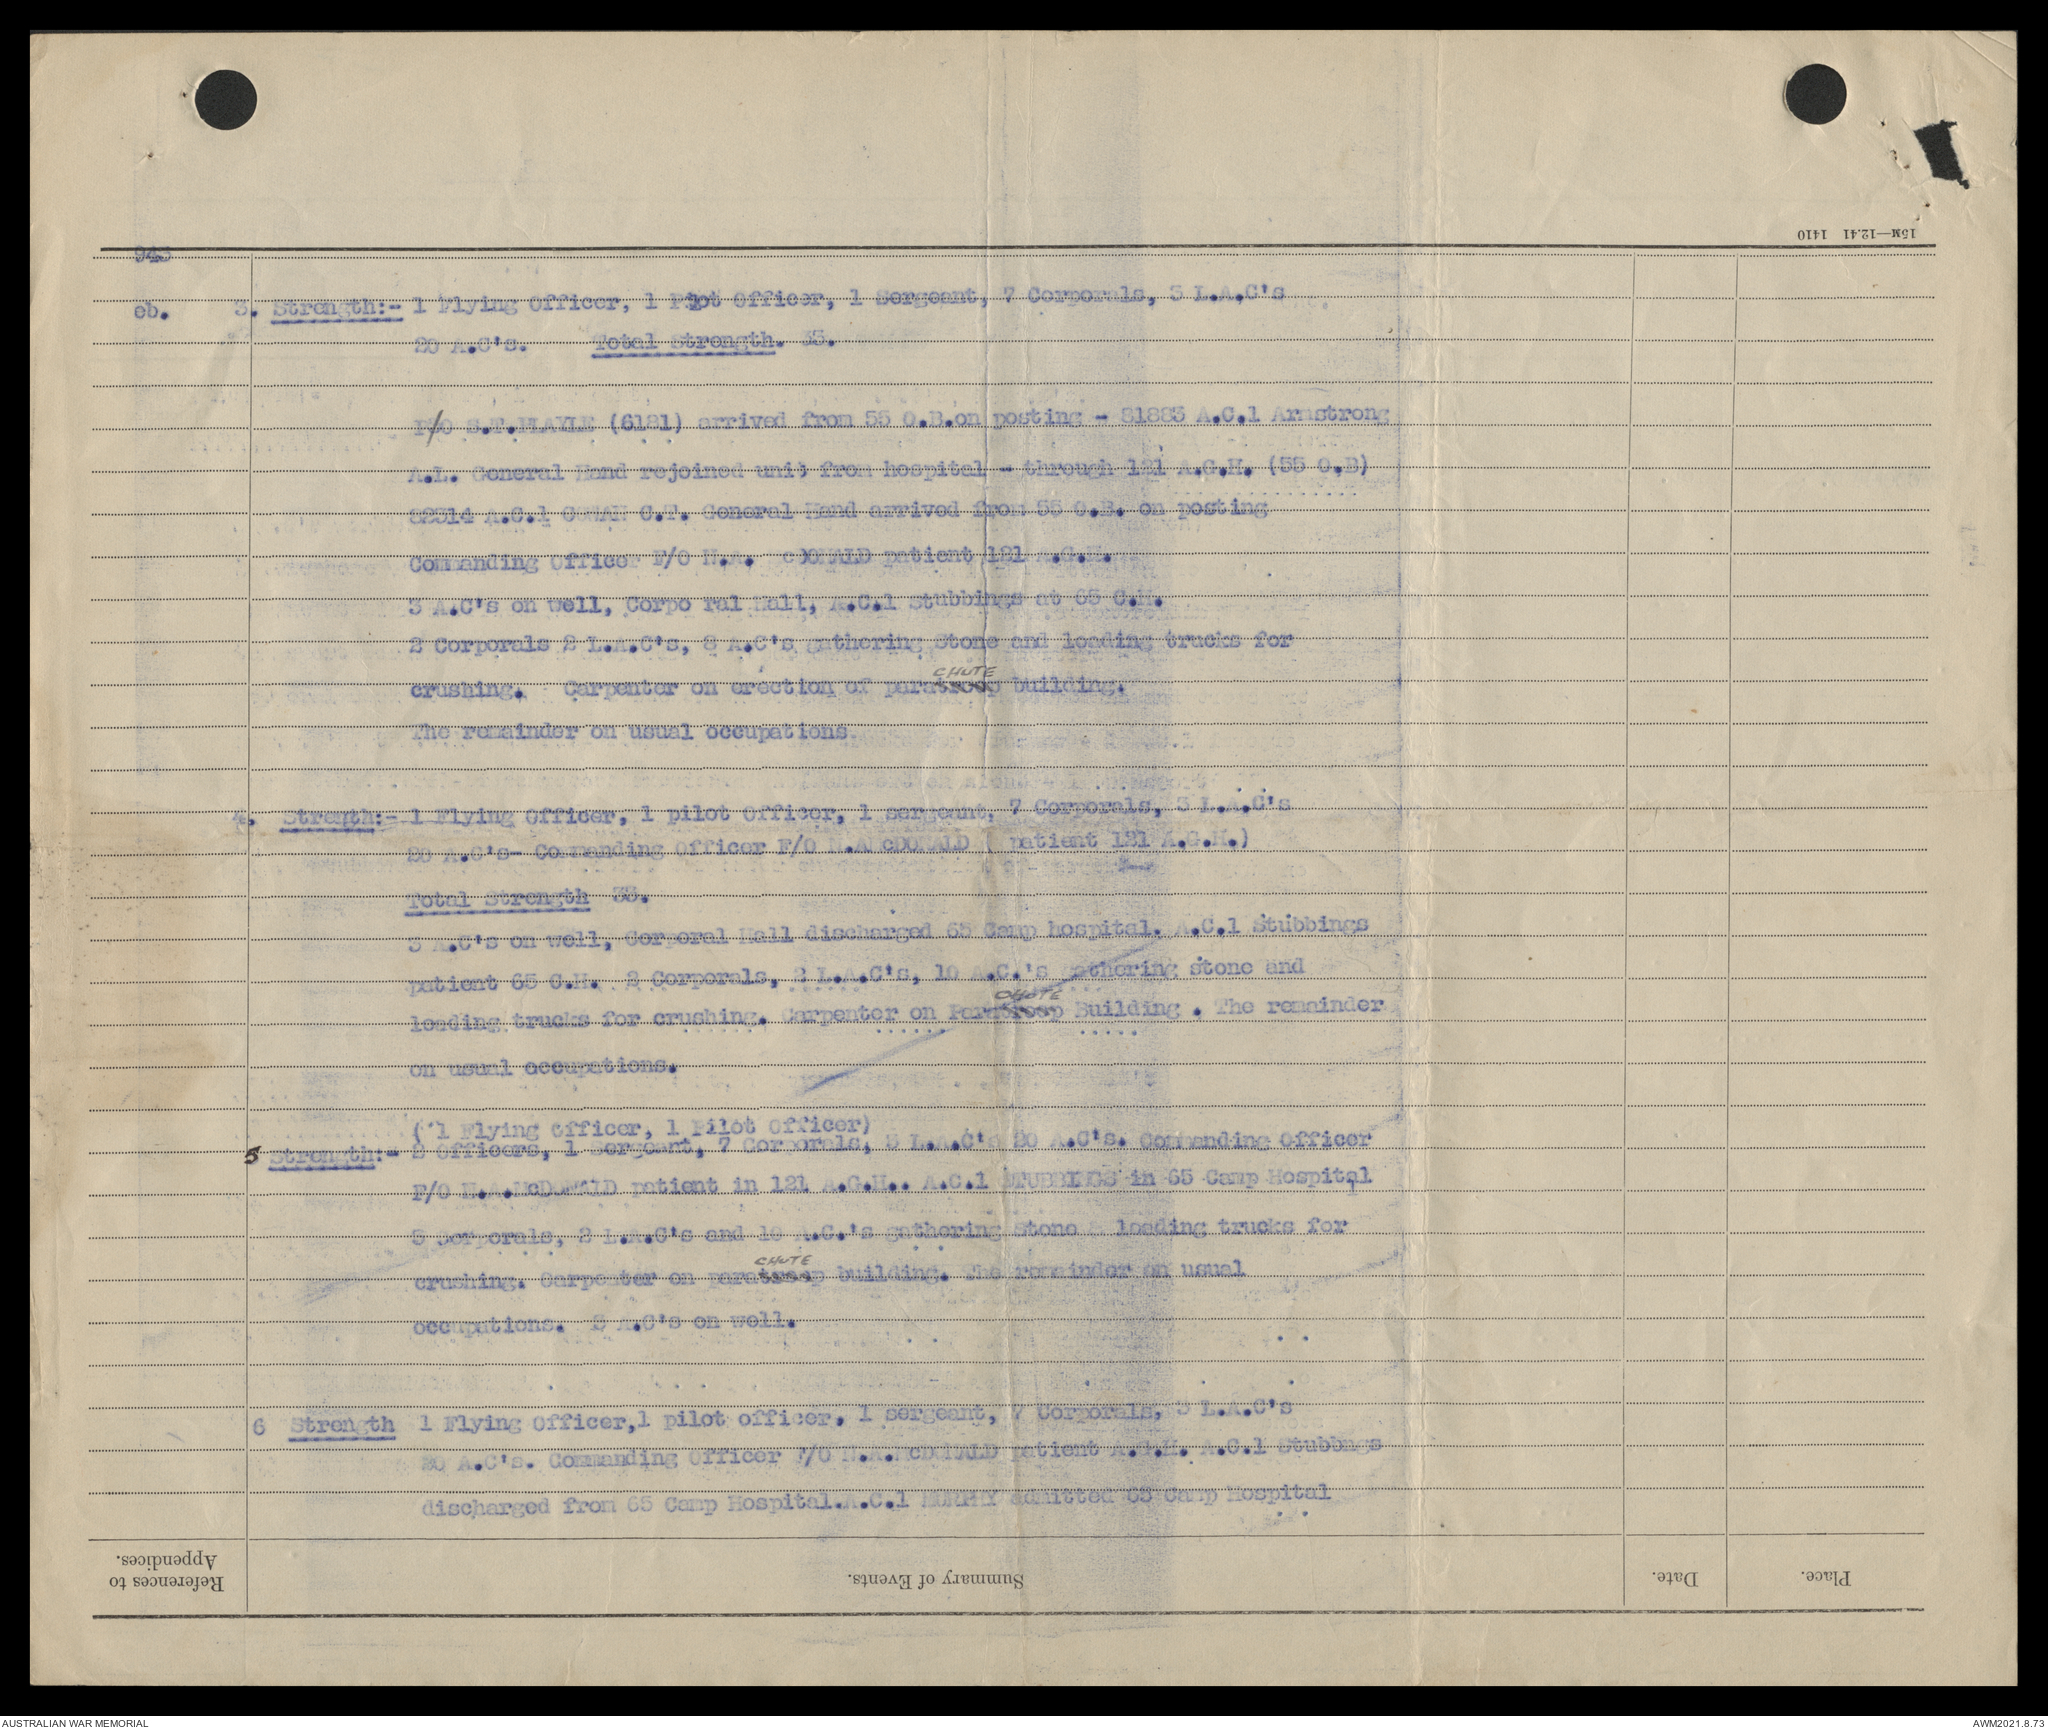 15M—12.41 1410
943
eb. 3. Strength:- 1 Flying Officer, 1 Pilot Officer, 1 Sergeant, 7 Corporals, 3 L.A.C's
20 A.C's. Total Strength. 33.
P/O S.T. (6121) arrived from 55 O.B.on posting - 81883 A.C.1 Armstrong
A.L. General Hand rejoined unit from hospital - through 121 A.G.H. (55 O.B)
82314 A.C.1 C.T. General Hand arrived from 55 O.B. on posting
Commanding Officer F/O N.A. cDONALD patient 121 A.G.H.
3 A.C's on well, Corpo ral Hall, A.C.1 Stubbings at 65 C.H.
2 Corporals 2 L.A.C's, 8 A.C's gathering Stone and loading trucks for
CHUTE
crushing. Carpenter on erection of paratroop building.
The remainder on usual occupations
4. Strength:- 1 Flying Officer, 1 pilot Officer, 1 sergeant, 7 Corporals, 3 L.A.C's
20 A.C's- Commanding Officer F/O N.A.McDONALD ( patient 121 A.G.H.)
Total Strength 33.
3 A.C's on well, Corporal Hall discharged 65 Camp hospital. A.C.1 Stubbings
patient 65 C.H. 2 Corporals, 2 L.A.C's, 10 A.C.'s gathering stone and
CHUTE
loading trucks for crushing. Carpenter on Paratroop Building . The remainder
on usual occupations.
( 1 Flying Officer, 1 Pilot Officer)
5 Strength:- 2 Officers, 1 Sergeant, 7 Corporals, 3 L.A.C's 20 A.C's. Commanding Officer
F/O N.A.McDONALD patient in 121 A.G.H.. A.C.1 STUBBINGS in 65 Camp Hospital
3 Corporals, 2 L.A.C's and 10 A.C.'s gathering stone & loading trucks for
CHUTE
crushing. Carpenter on paratroop building. The remainder on usual
occupations. 3 A.C's on well.
6 Strength 1 Flying Officer,1 pilot officer. 1 sergeant, 7 Corporals, 3 L.A.C's
20 A.C's. Commanding Officer F/O N.A.McDONALD patient A.G.H. A.C.1 Stubbngs
discharged from 65 Camp Hospital.A.C.1 MURPHY admitted 65 Camp Hospital
References to
Appendices.
Summary of Events.
Date.
Place.
AUSTRALIAN WAR MEMORIAL
AWM2021.8.73